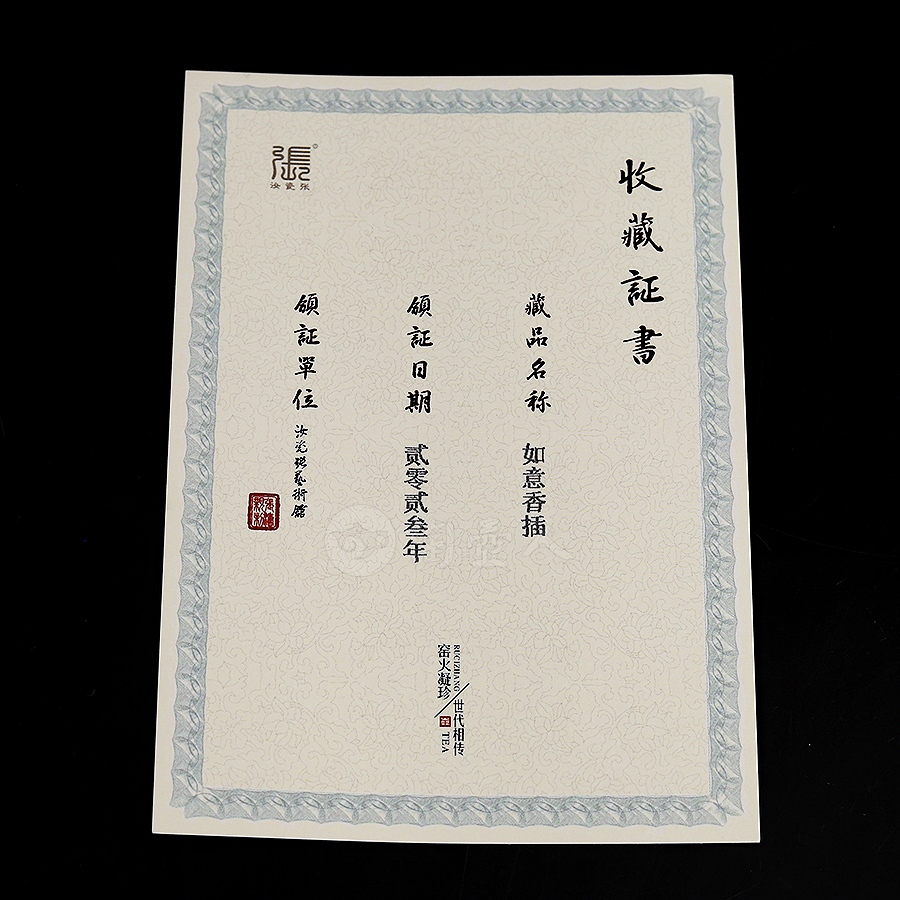 收藏証書
藏品名称 如意香插
領証日期 贰零贰叁年
領証單位 汝瓷張藝術館
張
汝瓷张
RUCIZHANG
世代相传
窑火凝珍
TEA